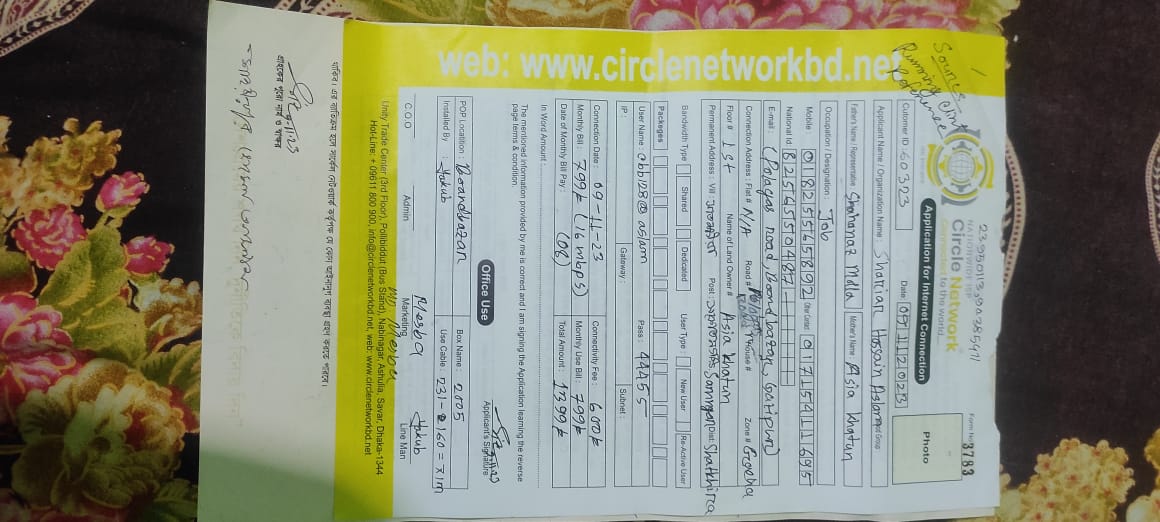 239501139028591
NATIONWIDE ISP
Circle Network
Connected to the world
Form No: 3783
Sources
Running Client
Reference
Application for Internet Connection
Photo
Customer ID: 60323 Date: 09 11 2023
Applicant Name / Organization Name: Shariar Hossain Aslam
Father's Name / Representative: Shahanaz Molla Mother's Name: Asia Khatun
Occupation / Designation: Job
Mobile: 01825565892 Other Contact: 01715411695
National Id: 8256550487
E-mail: (Palagas Road, Boardbazar, Gazipur)
Connection Address: Flat # N/A Road # House # Zone #
Floor # 1st Name of Land Owner # Asia Khatun
Permanent Address: Vill Post: Dist: Shatkhira
Bandwidth Type Shared Dedicated User Type: New User Re-Active User
Packeges
User Name: abb128@aslam Pass: 4455
IP: Gateway: Subnet:
Connection Date: 09-11-23 Connectivity Fee: 600৳
Monthly Bill: 799৳ (16 mbps) Monthly Use Bill: 799৳
Date of Monthly Bill Pay: (08) Total Amount: 1399৳
In Word Amount:
The mentioned information provided by me is correct and I am signing the Application learning the reverse
page items & condition.
Applicant's Signature
Office Use
POP Location: Boardbazar Box Name: 2005
Installed By: Yakub Use Cable: 231-160=71m
Mesba Yakub
C.O.O Admin Marketing Line Man
MD Mesba
Unity Trade Center (3rd Floor), Pollibiddut (Bus Stand), Nabinagar, Ashulia, Savar, Dhaka-1344
Hot-Line: + 09611 800 900, info@circlenetworkbd.net, web: www.circlenetworkbd.net
web: www.circlenetworkbd.net
গ্রাহকের পুরো নাম ও স্বাক্ষর